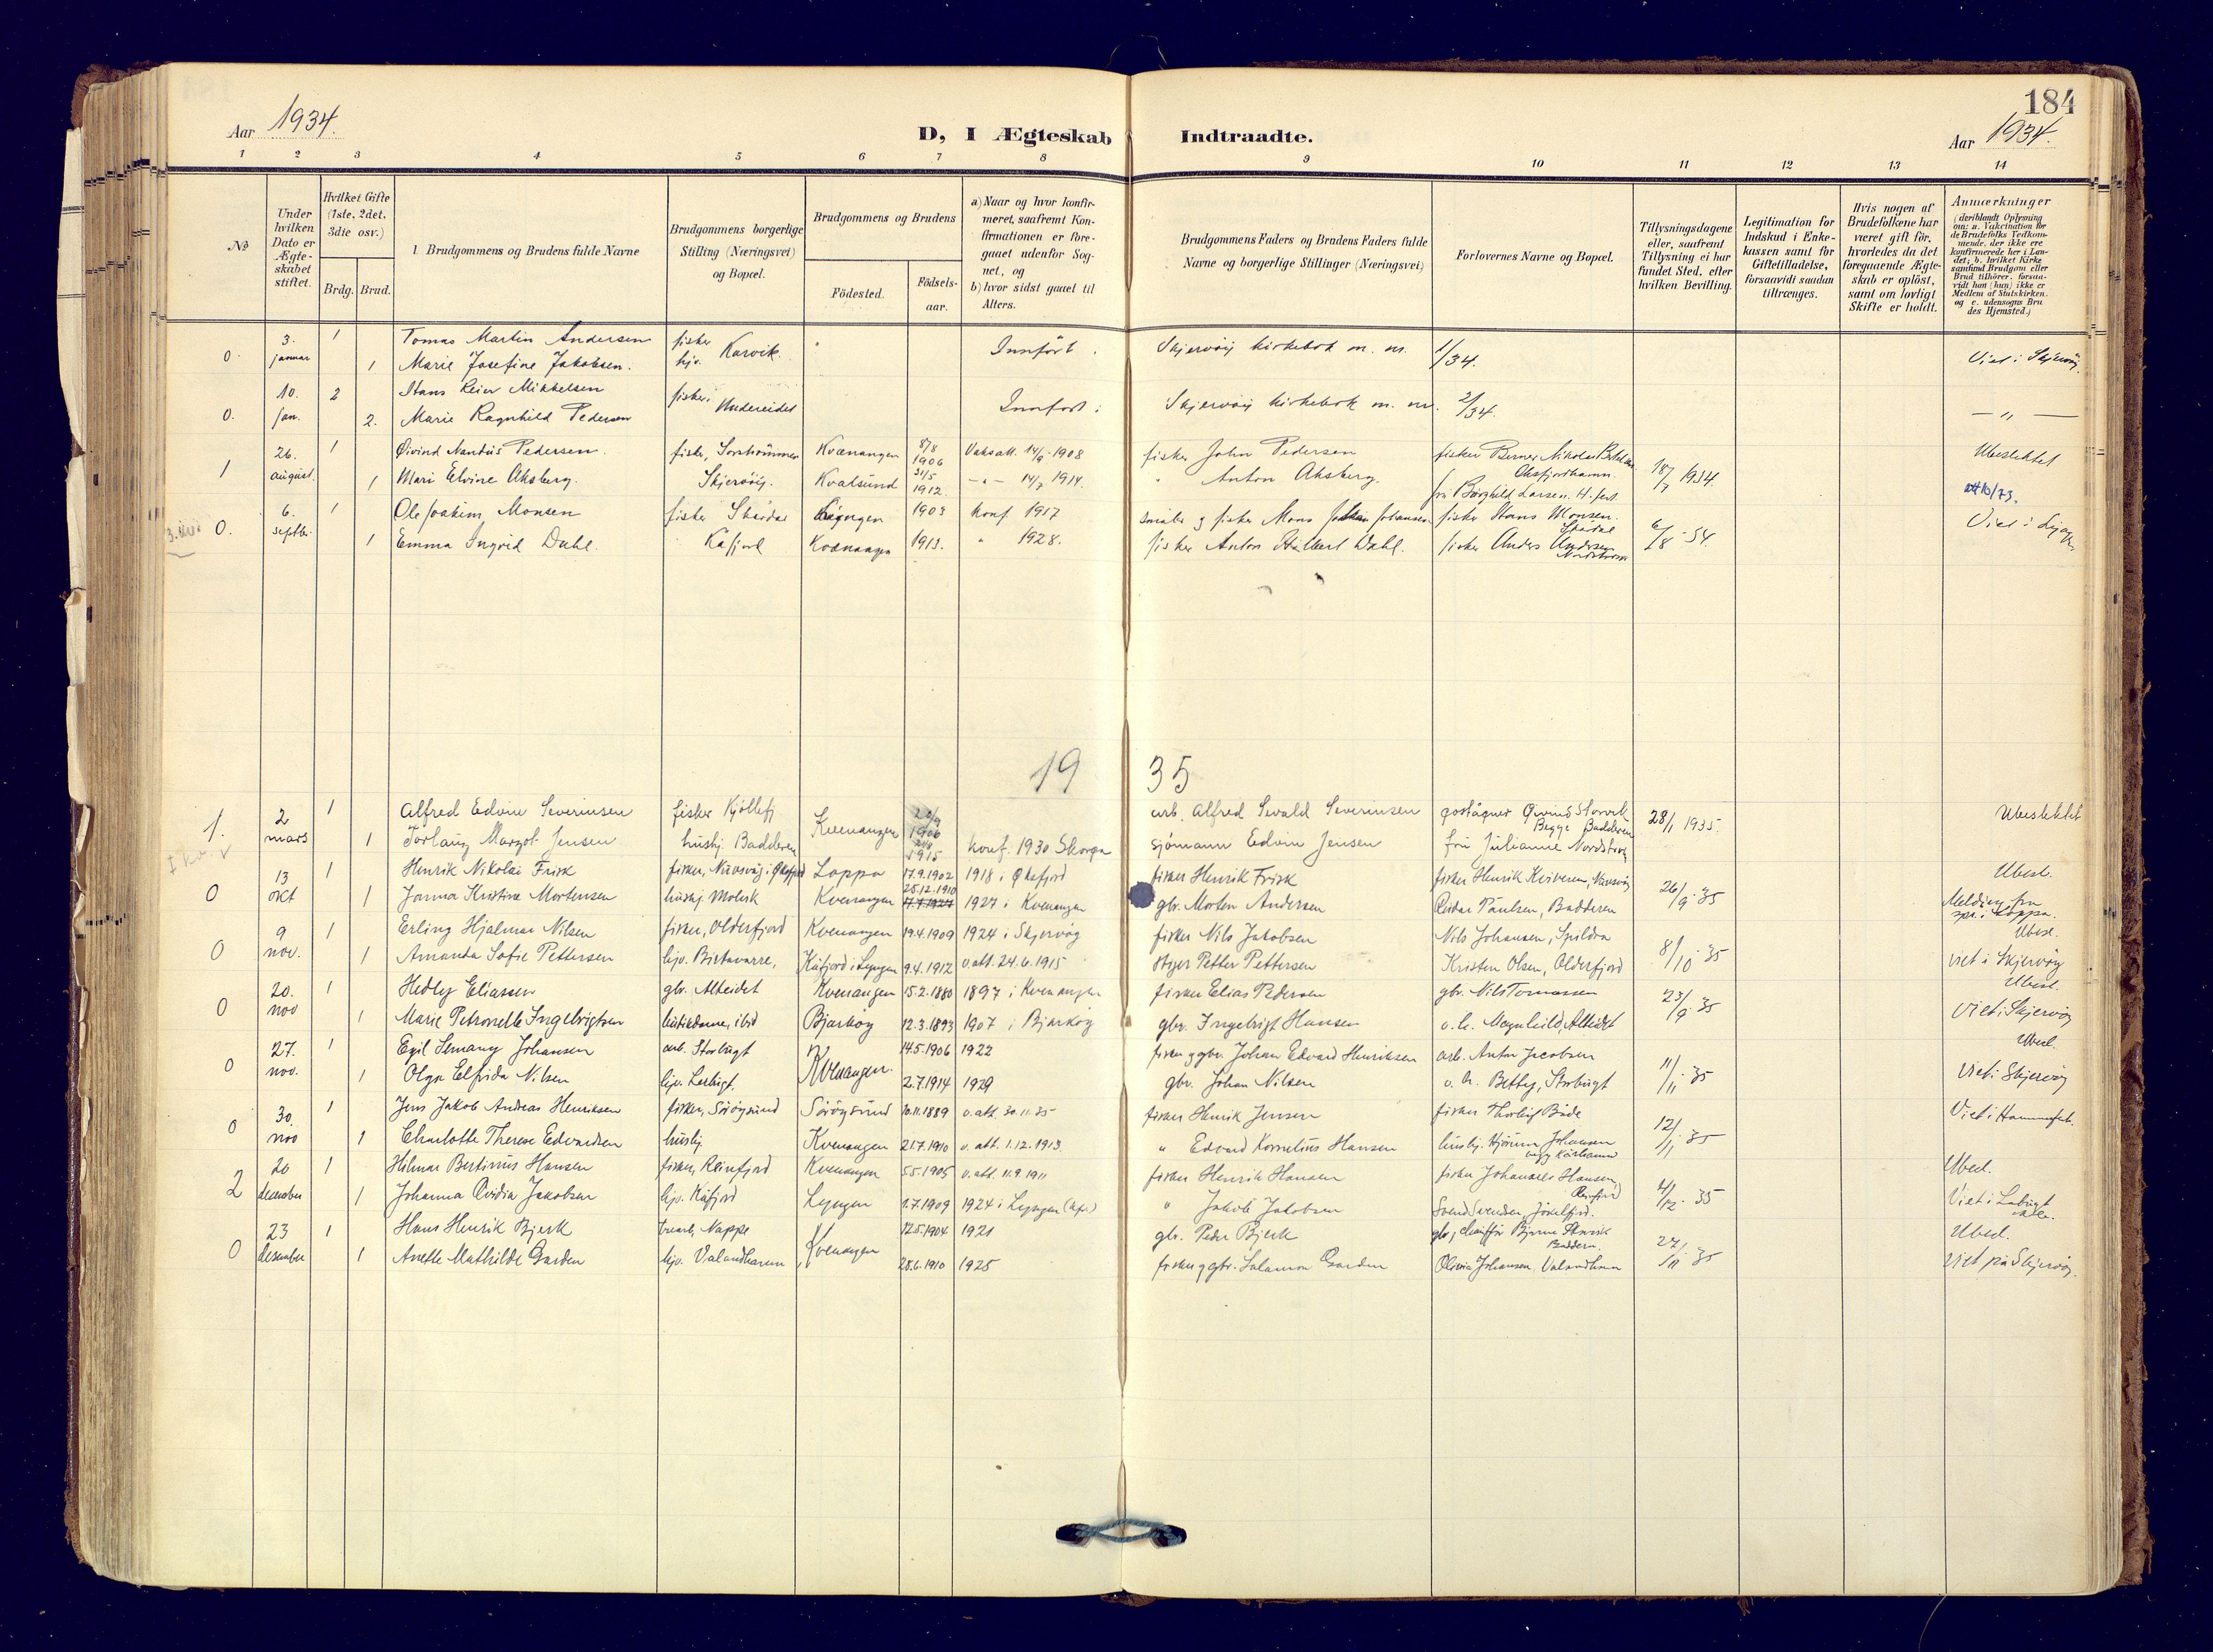 184
Aar 1934.
D, I Ægteskab Indtraadte.
Aar 1934.
1 2 3 4 5 6 7 8 9 10 11 12 13 14
No
Under hvilken Dato er Ægte-skabet stiftet.
Hvilket Gifte (1ste, 2det, 3die osv.)
Brdg. Brud.
Brudgommens og Brudens fulde Navne
Brudgommens borgerlige Stilling (Næringsvei) og Bopæl.
Brudgommens og Brudens
Födested.
Födsels-aar.
a) Naar og hvor konfir-meret, saafremt Kon-firmationen er fore-gaaet udenfor Sog-net, og
b) hvor sidst gaaet til Alters.
Brudgommens Faders og Brudens Faders fulde Navne og borgerlige Stillinger (Næringsvei)
Forlovernes Navne og Bopæl.
Tillysningsdagene eller, saafremt Tillysning ei har fundet Sted, efter hvilken Bevilling.
Legitimation for Indskud i Enke-kassen samt for Giftetilladelse, forsaavidt saadan tiltrænges.
Hvis nogen af Brudefolkene har været gift för, hvorledes da det foregaaende Ægte-skab er oplöst, samt om lovligt Skifte er holdt.
Anmærkninger
(deriblandt Oplysning om: a. Vakcination för de Brudefolks Vedkom-mende, der ikke ere konfirmerede her i Lan-det; b. hvilket Kirke-samfund Brudgom eller Brud tilhörer, forsaa-vidt han (hun) ikke er Medlem af Statskirken, og c. udensogns Bru-des Hjemsted.)
0. 3. januar 1 Tomas Martin Andersen fisker Karvik. Innført i Skjervöy kirkebok m. nr. 1/34. Viet i Skjervöy.
1 Marie Josefine Jakobsen. hjv.
0. 10. jan. 2 Hans Reier Mikkelsen fisker, Undereidet Innført i Skjervöy kirkebok m. nr. 2/34. — „ —
2. Marie Ragnhild Pedersen
1 26. august 1 Øivind Nantius Pedersen. fisker, Sorstrømmen Kvænangen 8/8 1906 Vaks att. 14/9 1908 fisker John Pedersen fisker Berner Nikolai 18/7 1934 Ubeslektet
1 Mari Elvine Aksberg. Skjervöy. Kvalsund 31/5 1912 — „ — 14/7 1914. „ Anton Aksberg. fru Borghild Larsen. att 10/73.
0. 6. septbr. 1 Ole Joakim Monsen fisker Skaidas Lyngen 1903 konf 1917 småbr. g fisker Mons Johan Johansen fisker Hans Monsen. Skardal 6/8 - 34. Viet i Lyngen
1 Emma Ingrid Dahl. Kåfjord Kvænangen 1913. „ 1928. fisker Anton Dahl. fisker Anders Andersen
19 35
1. 2 mars 1 Alfred Edvin Severinsen fisker Kjøllefj Kvænangen 1906 arb. Alfred Sevald Severinsen postågner Øivind Storvik Begge Badderen 28/1 1935. Ubeslektet
1 Torlaug Margot Jensen husbj. Badderen 1915 konf. 1930 sjömann Edvin Jensen fru Julianne
0 13 okt 1 Henrik Nikolai Frisk fisker, i Øksfjord Loppa 17.9.1902 1918 i Øksfjord fisker Henrik Frisk fisker Henrik 26/9 - 35 Ubesl.
1 Janna Kristine Mortensen husbj. Molvik Kvenangen 25.12.1910 1927 i Kvenangen gbr. Morten Andersen Reidar Paulsen, Badderen Melding fra spr. i Loppa.
0 9 nov. 1 Erling Hjalmar Nilsen fisker, Olderfjord Kvenangen 19.4.1909 1924 i Skjervøy fisker Nils Jakobsen Nils Johansen, Spildra 8/10 - 35 Ubesl.
1 Amanda Sofie Pettersen hjv. Birtavarre, Kåfjord i Lyngen 9.4.1912 v. att. 24.6.1915 Petter Pettersen Kristen Olsen, Olderfjord viet i Skjervöy
0 20. nov 1 Hedley Eliassen gbr. Alteidet Kvenangen 15.2.1880 1897 i Kvenangen fisker Elias Pedersen gbr. Nils Tomassen 23/9 - 35 Ubesl.
1 Marie Petronelle Ingebrigtsen ibid Bjarköy 12.3.1893 1907 i Bjarköy gbr. Ingebrigt Hansen o. h. Magnhild, Alteidet Viet i Skjervöy
0 27. nov. 1 Egil Semany Johansen arb. Storbugt Kvenangen. 14.5.1906 1922 fisker g gbr. Johan Edvard Henriksen arb. Anton Jacobsen 11/11 - 35 Ubesl.
1 Olga Elfrida Nilsen hjv. Lerbugt. 2.7.1914 1929 gbr. Johan Nilsen o. h. Betty, Storbugt Viet i Skjervöy
0 30. nov 1 Jens Jakob Andreas Henriksen fisker, Söröysund Söröysund 10.11.1889 v. att. 30.11.35 fisker Henrik Jensen fisker Thorleif Bøde 12/1 - 35 Viet i Hammerfest.
1 Charlotte Therese Edvardsen husbj. Kvenangen 21.7.1910 v. att. 1.12.1913 „ Edvard Kornelius Hansen husbj. Hjørun Johansen begg Kårhamn
2 20 desember 1 Hilmar Bertinus Hansen fisker, Reinfjord Kvenangen 5.5.1905 v. att. 11.9.1911 fisker Henrik Hansen fisker Johannes Hansen, Reinfjord 4/12 - 35 Ubesl.
1 Johanna Ovidia Jakobsen hjv. Kåfjord Lyngen 1.7.1909 1924 i Lyngen „ Jakob Jakobsen Svend Svendsen, Jökelfjord. Viet i
0 23 desember 1 Hans Henrik Bjerk Nappe Kvenangen 12.5.1904 1921 gbr. Peder Bjerk gbr, Bjarne Badderen, 27/11 - 35 Ubesl.
1 Anette Mathilde Garden hjv. Valandhamn 28.6.1910 1925 fisker g gbr. Salamon Garden Olivia Johansen, Valandhamn Viet på Skjervöy.